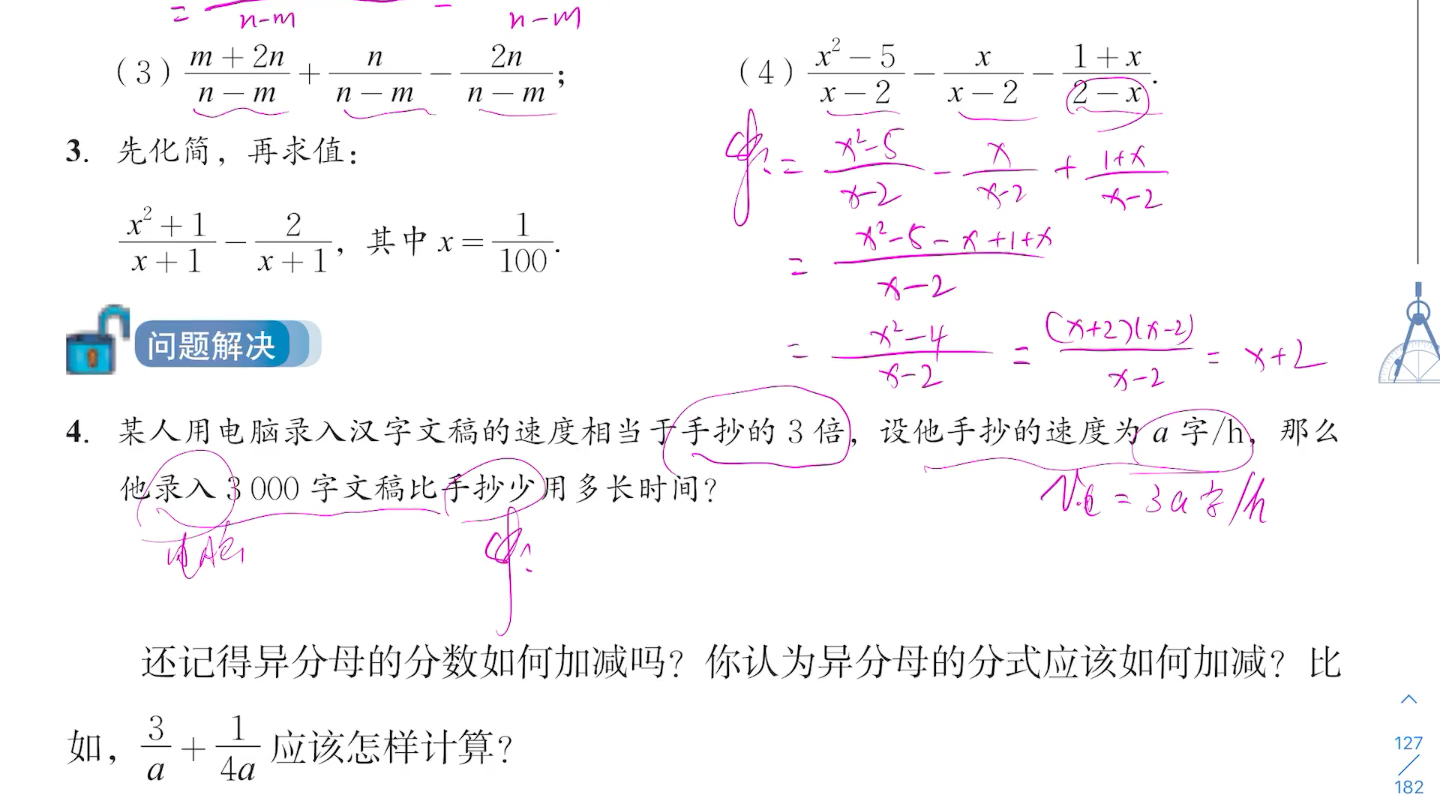 = n-m = n-m
(3) \frac{m+2n}{n-m} + \frac{n}{n-m} - \frac{2n}{n-m};
(4) \frac{x^2-5}{x-2} - \frac{x}{x-2} - \frac{1+x}{2-x}.
= \frac{x^2-5}{x-2} - \frac{x}{x-2} + \frac{1+x}{x-2}
= \frac{x^2-5-x+1+x}{x-2}
= \frac{x^2-4}{x-2} = \frac{(x+2)(x-2)}{x-2} = x+2
3. 先化简，再求值：
\frac{x^2+1}{x+1} - \frac{2}{x+1}，其中 x = \frac{1}{100}.
问题解决
4. 某人用电脑录入汉字文稿的速度相当于手抄的 3 倍，设他手抄的速度为 a 字/h，那么
他录入 3 000 字文稿比手抄少用多长时间？
= 3a字/h
还记得异分母的分数如何加减吗？你认为异分母的分式应该如何加减？比
如，\frac{3}{a} + \frac{1}{4a} 应该怎样计算？
127
182